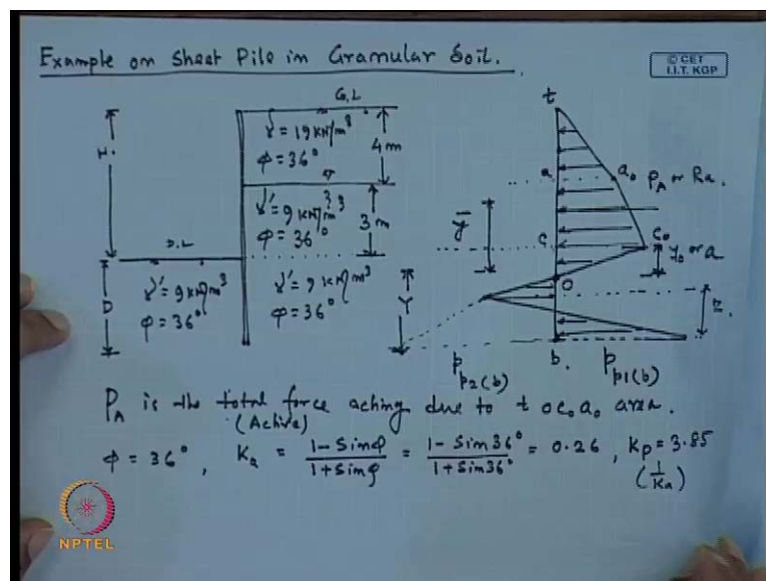 Example on Sheet Pile in Granular Soil.
© CET
I.I.T. KGP
G.L
H.
γ = 19 KN/m³
φ = 36°
4m
γ' = 9 KN/m³
φ = 36°
3m
D.L
D
γ' = 9 KN/m³
φ = 36°
γ' = 9 KN/m³
φ = 36°
Y
t
a
a₀
P_A or Ra.
ȳ
c
c₀
y₀ or a
O
z.
b.
P_p2(b)
P_p1(b)
P_A is the total force aching due to t o c₀ a₀ area.
(Active)
φ = 36°, Ka = 1-Sinφ / 1+Sinφ = 1-Sin36° / 1+Sin36° = 0.26, Kp = 3.85
(1/Ka)
NPTEL